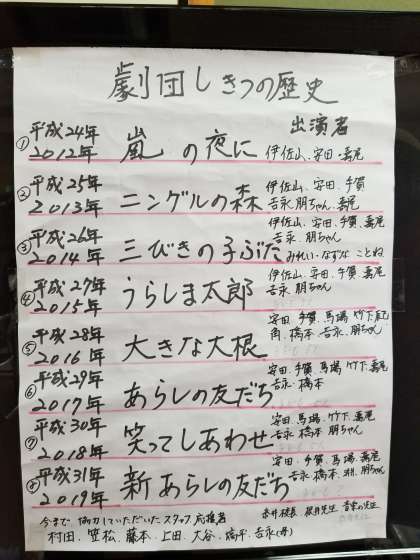 劇団しきつの歴史
出演者
① 平成24年 2012年 嵐の夜に 伊佐山、安田・嘉尾
② 平成25年 2013年 ニングルの森 伊佐山、安田、手賀
吉永 朋ちゃん、嘉尾
③ 平成26年 2014年 三びきの子ぶた 伊佐山、安田、手賀、嘉尾
吉永、朋ちゃん
みれい・なずな ことね
④ 平成27年 2015年 うらしま太郎 伊佐山、安田、手賀、嘉尾
吉永、朋ちゃん
⑤ 平成28年 2016年 大きな大根 安田、手賀、馬場 竹下
角、橋本 吉永、朋ちゃん
⑥ 平成29年 2017年 あらしの友だち 安田、手賀 馬場 竹下、嘉尾
吉永 橋本
⑦ 平成30年 2018年 笑ってしあわせ 安田、馬場、竹下、嘉尾
吉永 橋本 朋ちゃん
⑧ 平成31年 2019年 新あらしの友だち 安田、手賀、馬場、嘉尾
吉永 橋本
今まで 協力していただいたスタッフ 応援者
村田、笠松、藤本、上田、大谷、橋平、吉永(母)